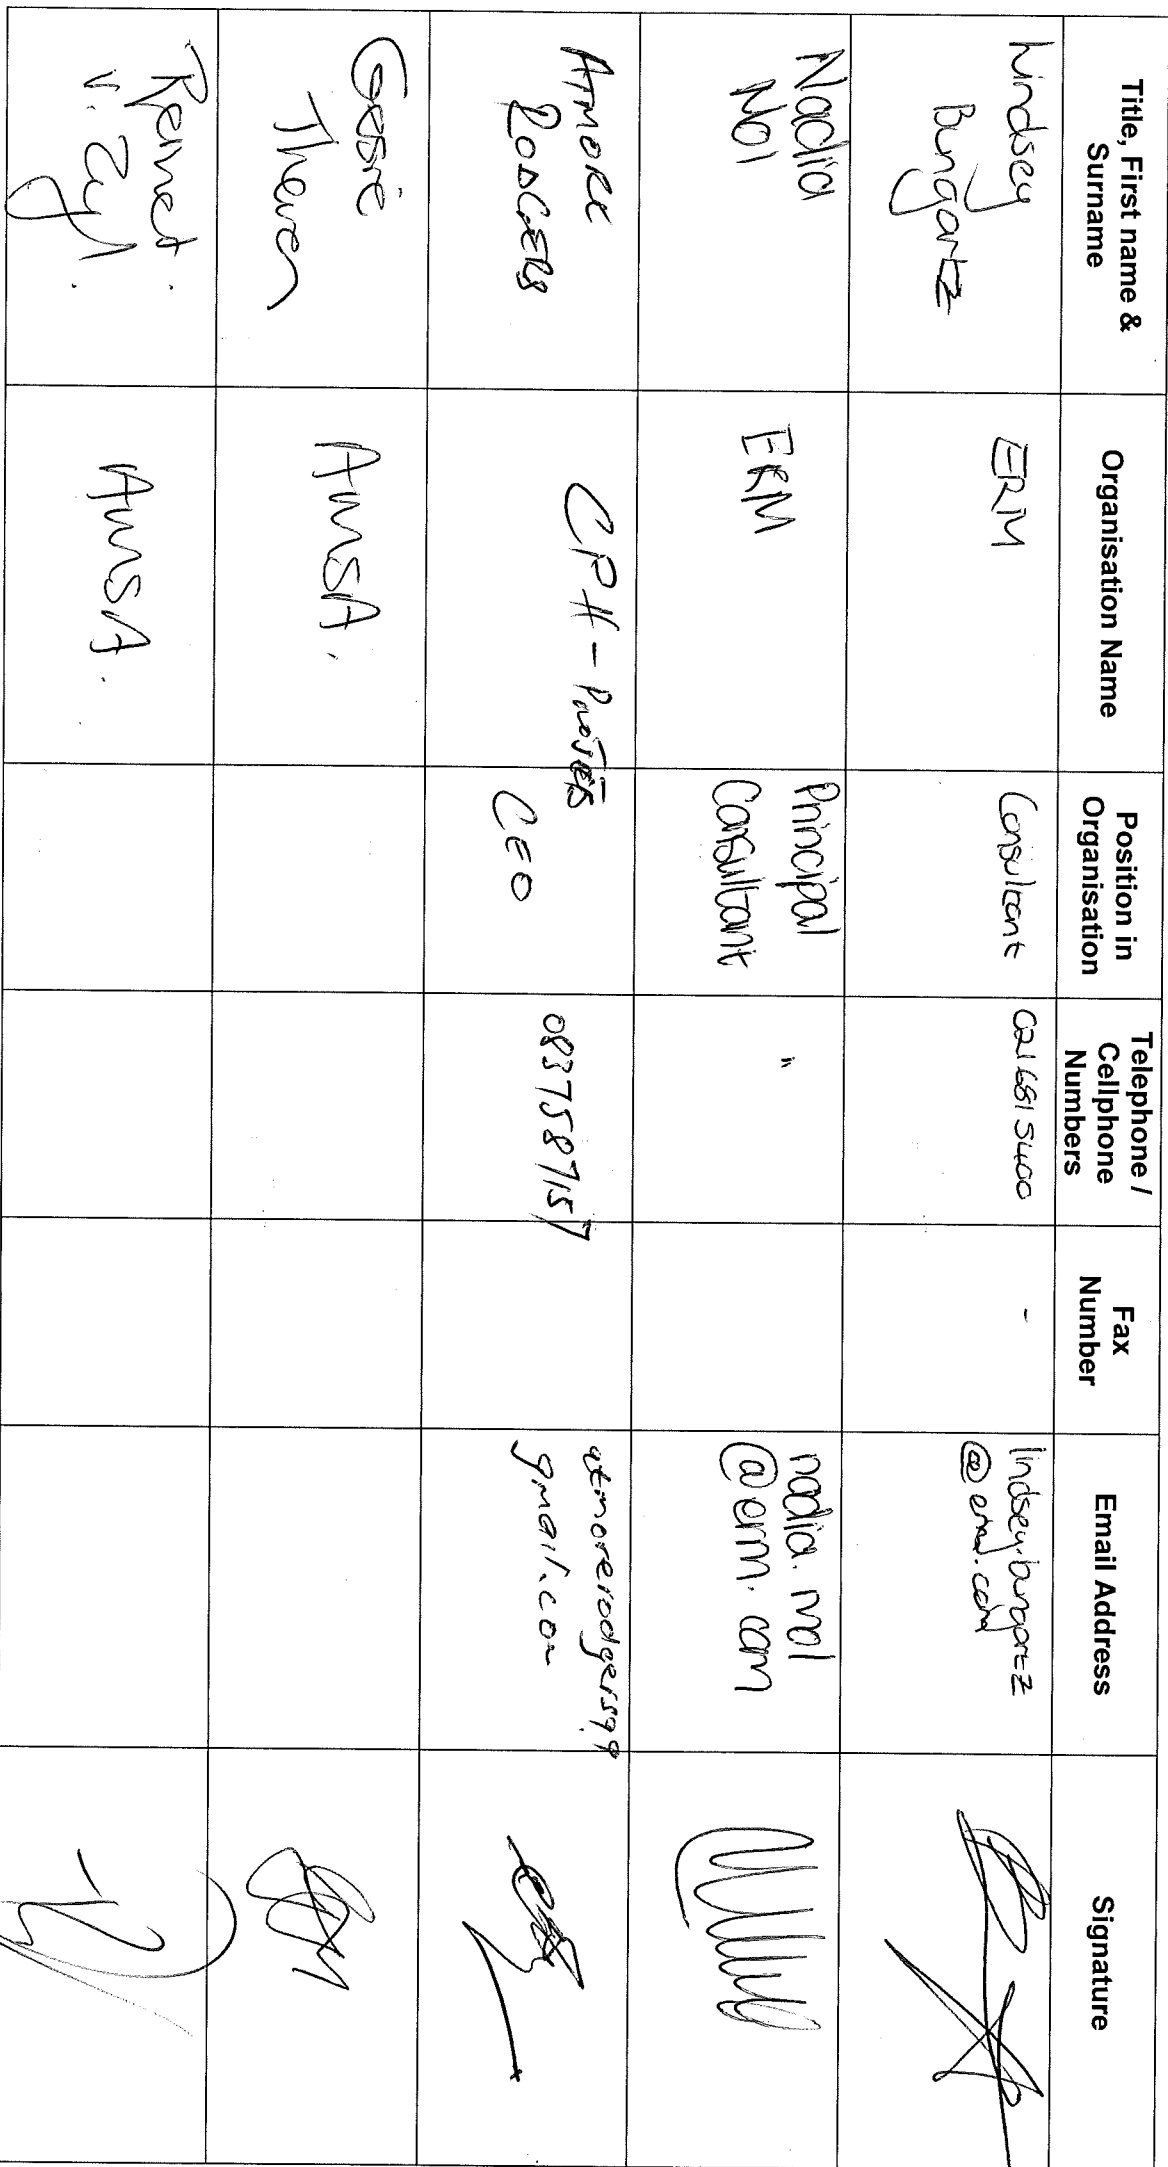 Title, First name &
Surname
Organisation Name
Position in
Organisation
Telephone /
Cellphone
Numbers
Fax
Number
Email Address
Signature
Lindsey
Bungartz
ERM
Consultant
021 681 5400
-
lindsey.bungartz
@erm.com
Nadia
Mol
ERM
Principal
Consultant
"
nadia.mol
@erm.com
ATMORE
RODGERS
CPH - Projects
CEO
0837587157
atmorerodgers99
gmail.com
Gessie
Theron
AMSA.
v. Zyl.
AMSA.